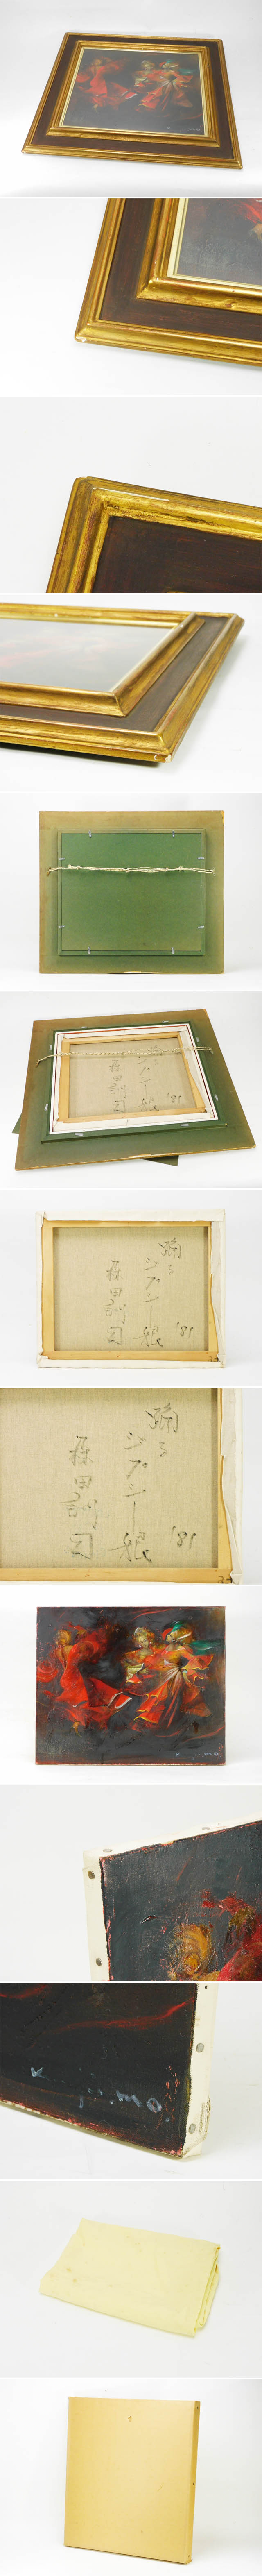 踊る
'81
ジプシー娘
森田訓司
踊る
'81
ジプシー娘
森田訓司
踊る
'81
ジプシー娘
森田訓司